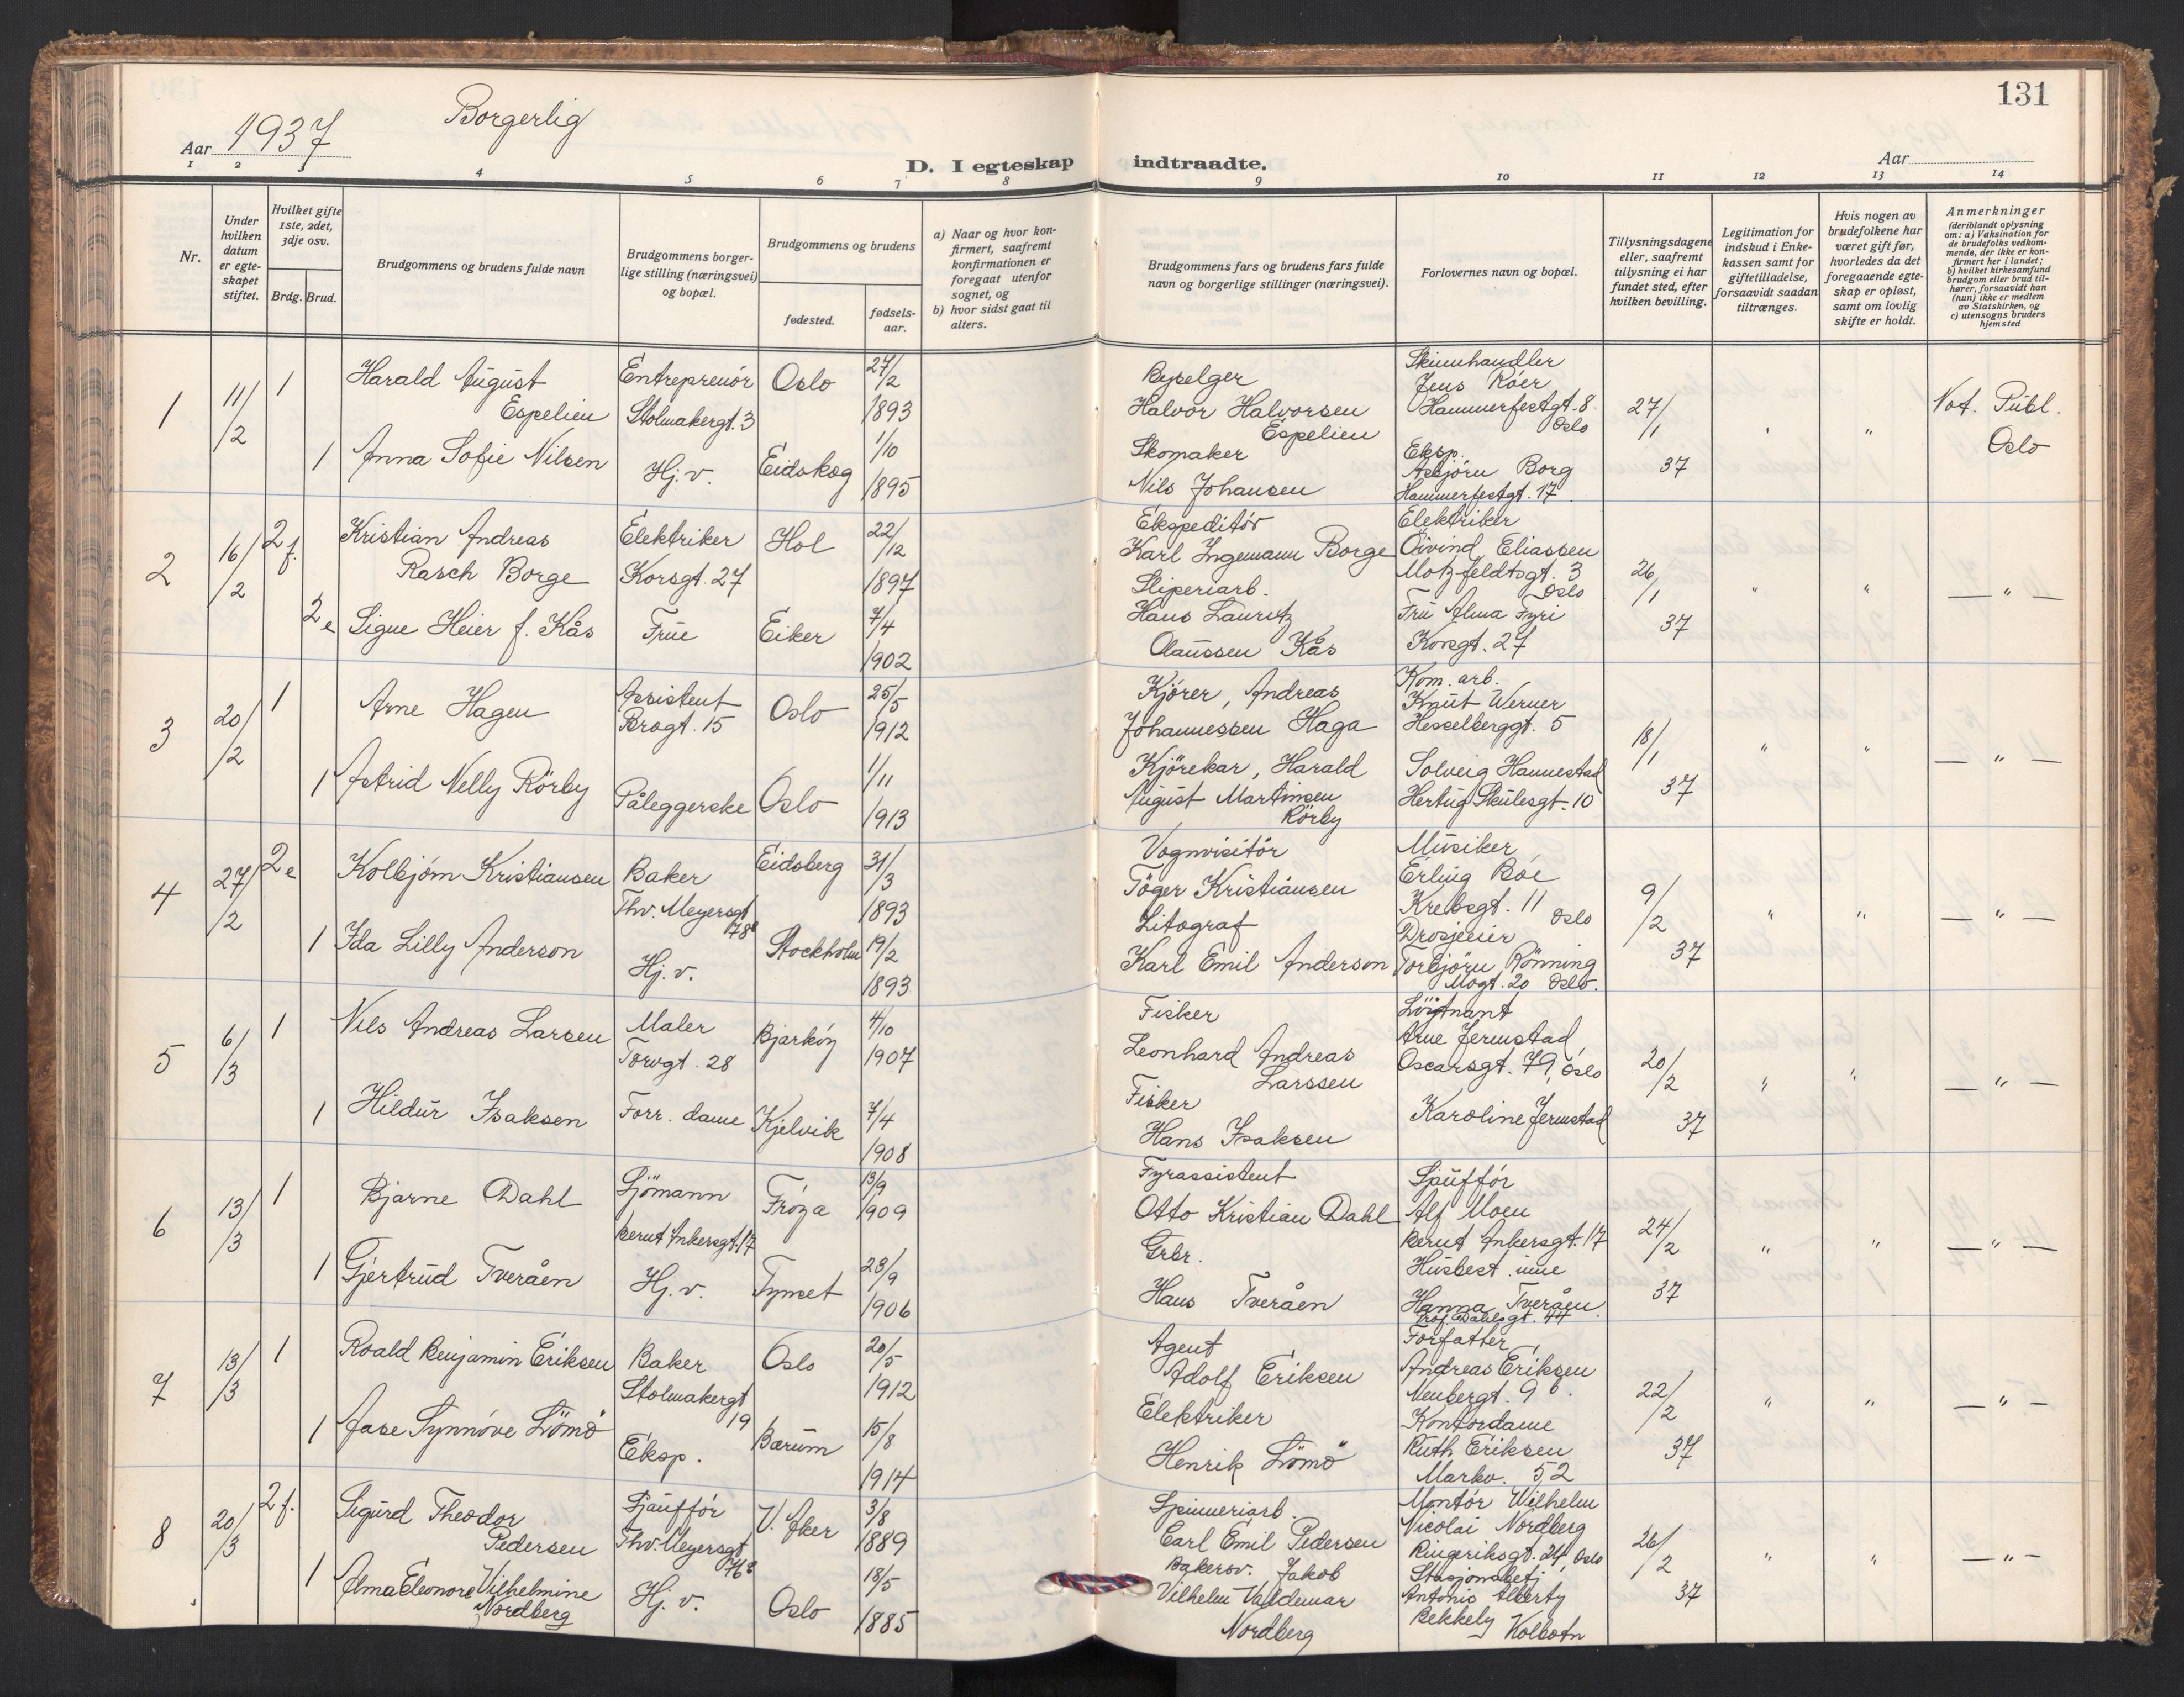 131
Aar 1937
Borgerlig
D. I egteskap indtraadte.
Aar
1 2 3 4 5 6 7 8 9 10 11 12 13 14
Nr.
Under hvilken datum er egte- skapet stiftet.
Hvilket gifte 1ste, 2det, 3dje osv.
Brdg. Brud.
Brudgommens og brudens fulde navn
Brudgommens borger- lige stilling (næringsvei) og bopæl.
Brudgommens og brudens
fødested.
fødsels- aar.
a) Naar og hvor kon- firmert, saafremt konfirmationen er foregaat utenfor sognet, og
b) hvor sidst gaat til alters.
Brudgommens fars og brudens fars fulde navn og borgerlige stillinger (næringsvei).
Forlovernes navn og bopæl.
Tillysningsdagene eller, saafremt tillysning ei har fundet sted, efter hvilken bevilling.
Legitimation for indskud i Enke- kassen samt for giftetilladelse, forsaavidt saadan tiltrænges.
Hvis nogen av brudefolkene har været gift før, hvorledes da det foregaaende egte- skap er opløst, samt om lovlig skifte er holdt.
Anmerkninger (deriblandt oplysning om: a) Vaksination for de brudefolks vedkom- mende, der ikke er kon- firmert her i landet; b) hvilket kirkesamfund brudgom eller brud til- hører, forsaavidt han (hun) ikke er medlem av Statskirken, og c) utensogns bruders hjemsted
1
11/2
1
Harald August
Espelien
Entreprenør
Stolmakergt. 3
Oslo
27/2
1893
1
Anna Sofie Nilsen
Hj. v.
Eidskog
1/10
1895
Byselger
Halvor Halvorsen
Espelien
Skomaker
Nils Johansen
Skinnhandler
Jens Róer
Hammerfestgt. 8.
Oslo
Eksp.
Asbjörn Borg
Hammerfestgt. 17.
27/1
37
"
Not. Publ.
Oslo
2
16/2
2 f.
Kristian Andreas
Rasch Borge
Elektriker
Korsgt. 27
Hol
22/12
1897
2 e
Signe Heier f. Kås
Frue
Eiker
7/4
1902
Ekspeditör
Karl Ingemann Borge
Sliperiarb.
Hans Lauritz
Olaussen Kås
Elektriker
Öivind Eliassen
Motzfeldtsgt. 3
Oslo
Fru Alma Fyri
Korsgt. 27
26/1
37
" "
— " —
3
20/2
1
Arne Hagen
Assistent
Brogt. 15
Oslo
25/5
1912
1
Astrid Nelly Rörby
Påleggerske
Oslo
1/11
1913
Kjörer, Andreas
Johannessen Haga
Kjörekar, Harald
August Martinsen
Rörby
Kom. arb.
Knut Werner
Hesselberggt. 5
Solveig Hannestad
Hertug Skulesgt. 10
18/1
37
" "
— " —
4
27/2
2 e
Kolbjørn Kristiansen
Baker
Thv. Meyersgt
78
Eidsberg
31/3
1893
1
Ida Lilly Anderson
Hj. v.
Stockholm
19/2
1893
Vognvisitör
Töger Kristiansen
Litograf
Karl Emil Anderson
Musiker
Erling Böe
Krebsgt. 11
Oslo
Drosjeeier
Torbjörn Rönning
Mogt. 20 Oslo.
9/2
37
" "
— " —
5
6/3
1
Nils Andreas Larsen
Maler
Torvgt. 28
Bjarköy
4/10
1907
1
Hildur Isaksen
Forr. dame
Kjelvik
7/4
1908
Fisker
Leonhard Andreas
Larssen
Fisker
Hans Isaksen
Löitnant
Arne Jermstad
Oscarsgt. 79, Oslo
Karoline Jermstad
20/2
37
" "
— " —
6
13/3
1
Bjarne Dahl
Sjömann
Bernt Ankersgt. 17
Fröya
13/9
1909
1
Gjertrud Tveråen
Hj. v.
Tynset
23/9
1906
Fyrassistent
Otto Kristian Dahl
Grbr.
Hans Tveråen
Sjufför
Alf Moen
Bernt Ankersgt. 17
Husbest. inne
Hanna Tveråen
Prof. Dahlsgt. 44
24/2
37
" "
— " —
7
13/3
1
Roald Benjamin Eriksen
Baker
Stolmakergt
19
Oslo
20/5
1912
1
Aase Synnöve Lömö
Eksp.
Bærum
15/8
1914
Agent
Adolf Eriksen
Elektriker
Henrik Lömö
Forfatter
Andreas Eriksen
Neubergt. 9 b.
Kontordame
Ruth Eriksen
Markv. 52
22/2
37
" "
— " —
8
20/3
2 f.
Sigurd Theodor
Pedersen
Sjaufför
Thv. Meyersgt
V. Aker
3/8
1889
1
Alma Eleonore Vilhelmine
Nordberg
Hj. v.
Oslo
18/5
1885
Spinneriarb.
Carl Emil Pedersen
Bakersv. Jakob
Vilhelm Valdemar
Nordberg
Montör Wilhelm
Nicolai Nordberg
Ringeriksgt. 24, Oslo
Stasjonsbetj.
Antonio Alberty
Bekkely Kolbotn
26/2
37
" "
— " —